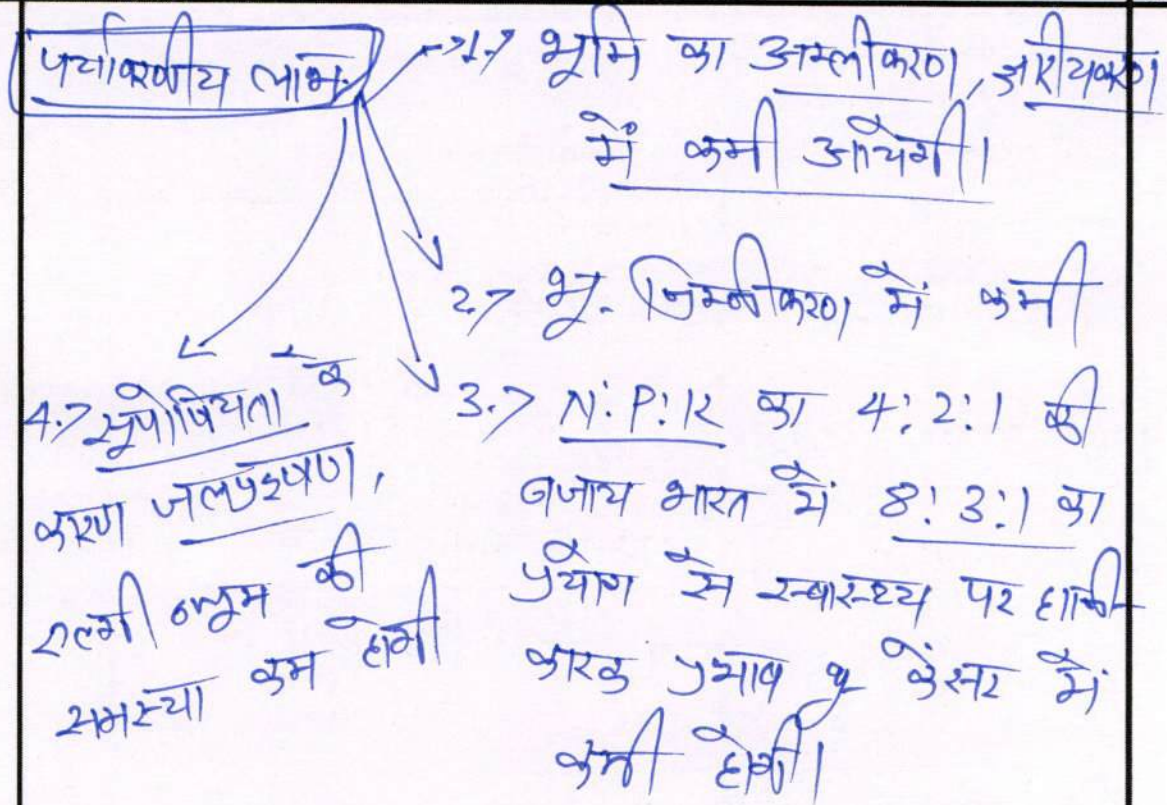 पर्यावरणीय लाभ:
1.> भूमि का अम्लीकरण, क्षारीयकरण
में कमी आयेगी।
2.> भू. निम्नीकरण में कमी
3.> N:P:K का 4:2:1 की
बजाय भारत में 8:3:1 का
प्रयोग से स्वास्थ्य पर हानि-
कारक प्रभाव व कैंसर में
कमी होगी।
4.> सुपोषियता के
कारण जलप्रदूषण,
एल्गी ब्लूम की
समस्या कम होगी